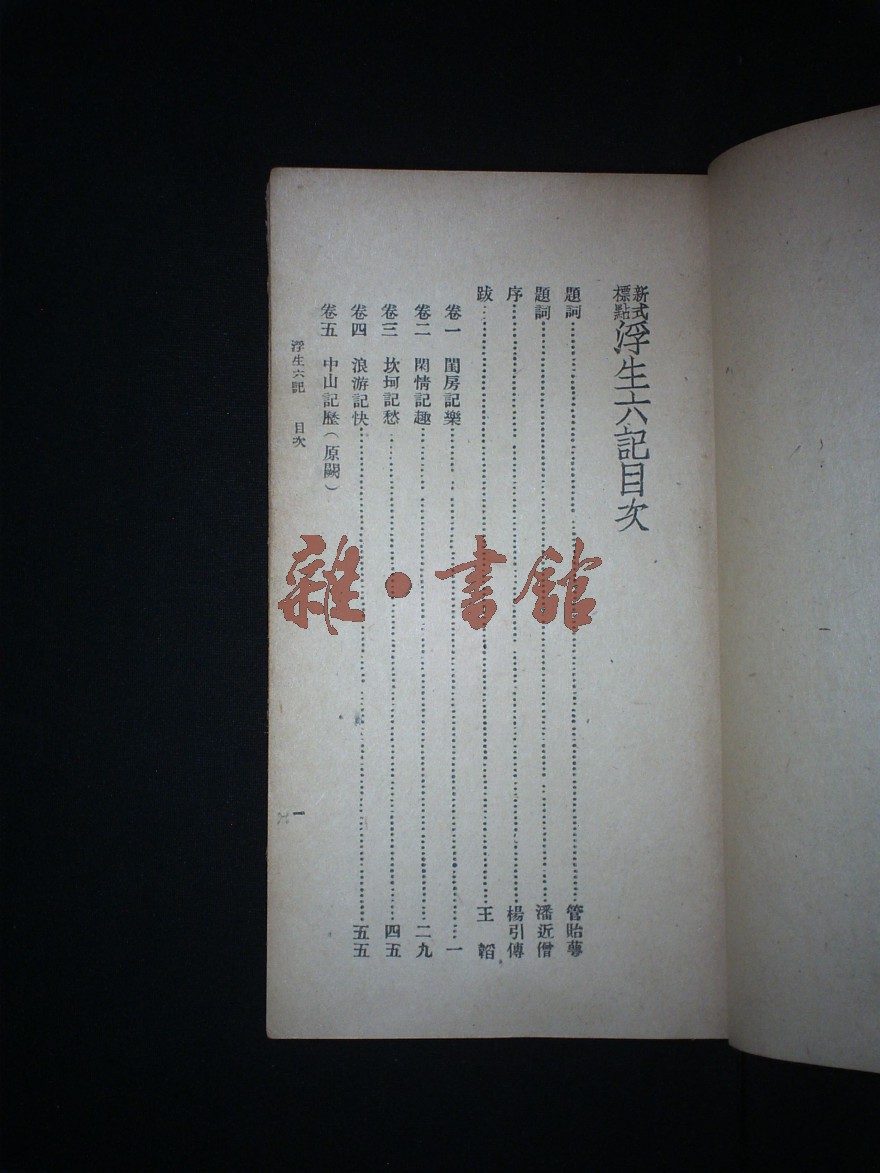 新式標點浮生六記目次
題詞……管貽萼
題詞……潘近僧
序……楊引傳
跋……王韜
卷一 閨房記樂……一
卷二 閑情記趣……二九
卷三 坎坷記愁……四五
卷四 浪游記快……五五
卷五 中山記歷（原闕）
浮生六記 目次
一
雜·書館